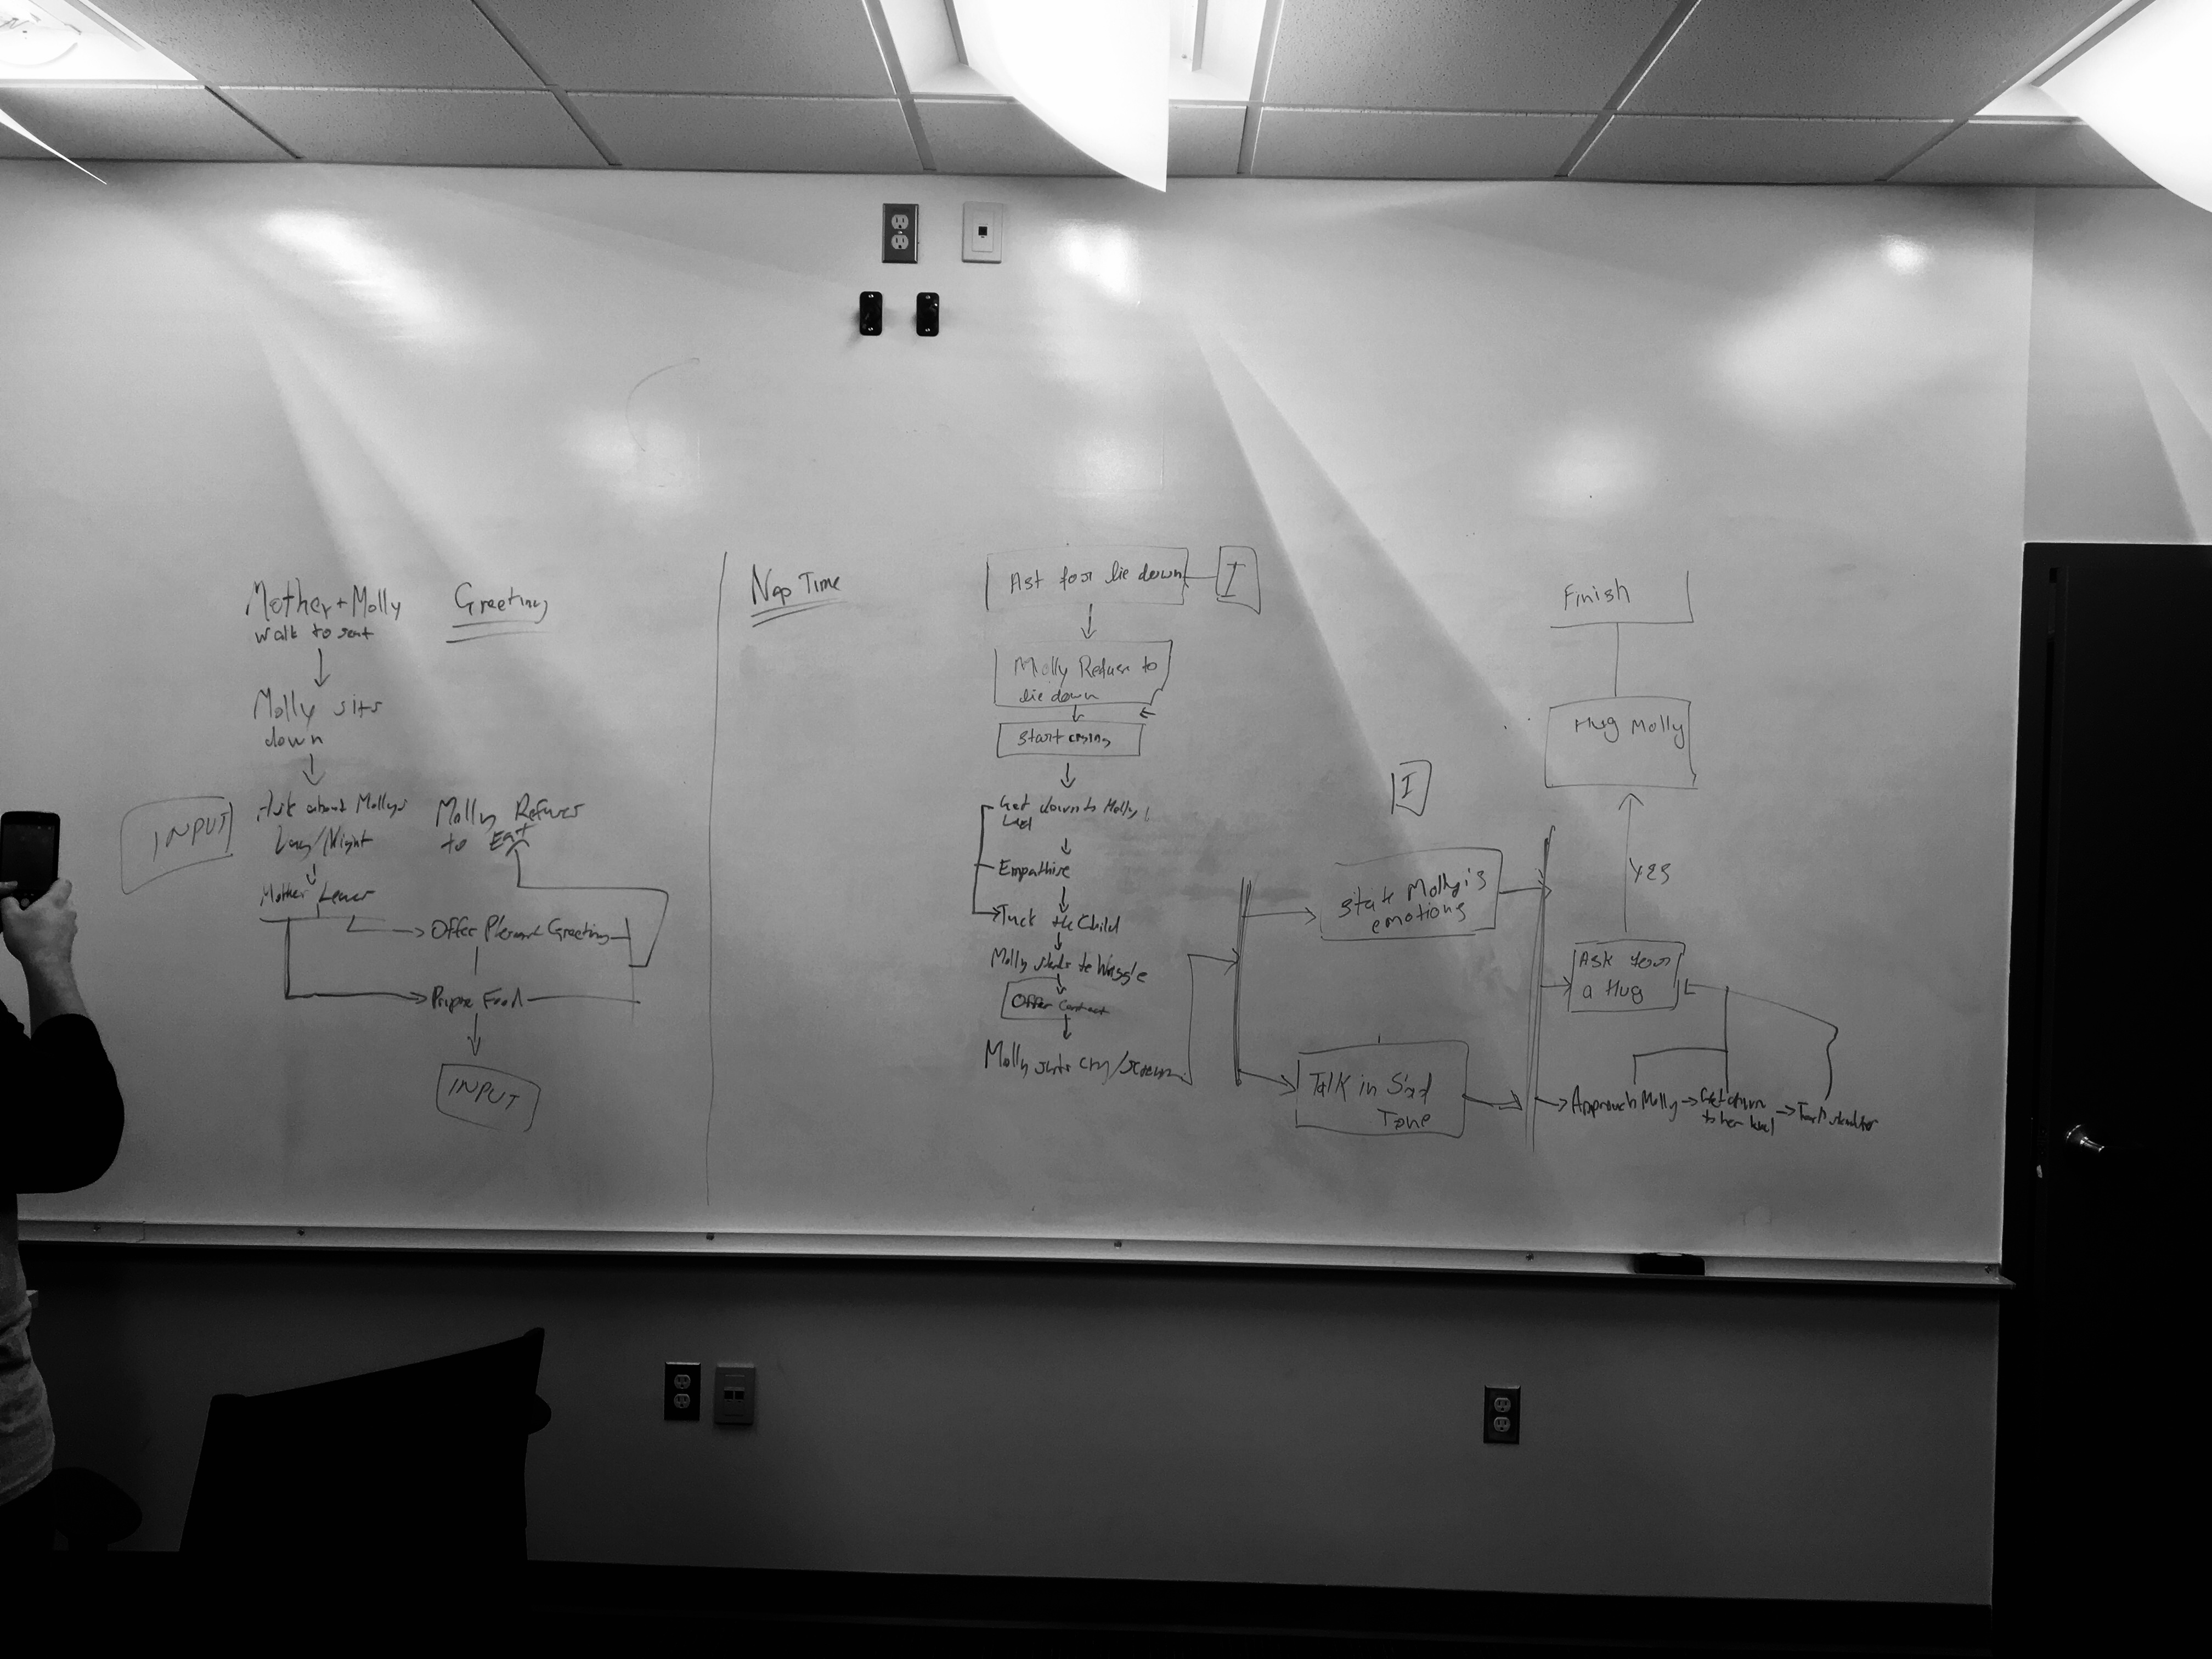 Mother + Molly
walk to seat
Greeting
Molly sits
down
INPUT
Ask about Mollys
Day/Night
Molly Refuses
to Eat
Mother Leaves
Offer Pleasant Greeting
Prepare Food
INPUT
Nap Time
Ask for lie down
I
Molly Refuse to
lie down
Start crying
Get down to Molly's
Level
Empathise
Tuck the Child
Molly starts to Wiggle
Offer Contact
Molly starts cry/scream
I
State Molly's
emotions
Talk in Sad
Tone
Finish
Hug Molly
YES
Ask for
a Hug
Approach Molly
Get down
to her level